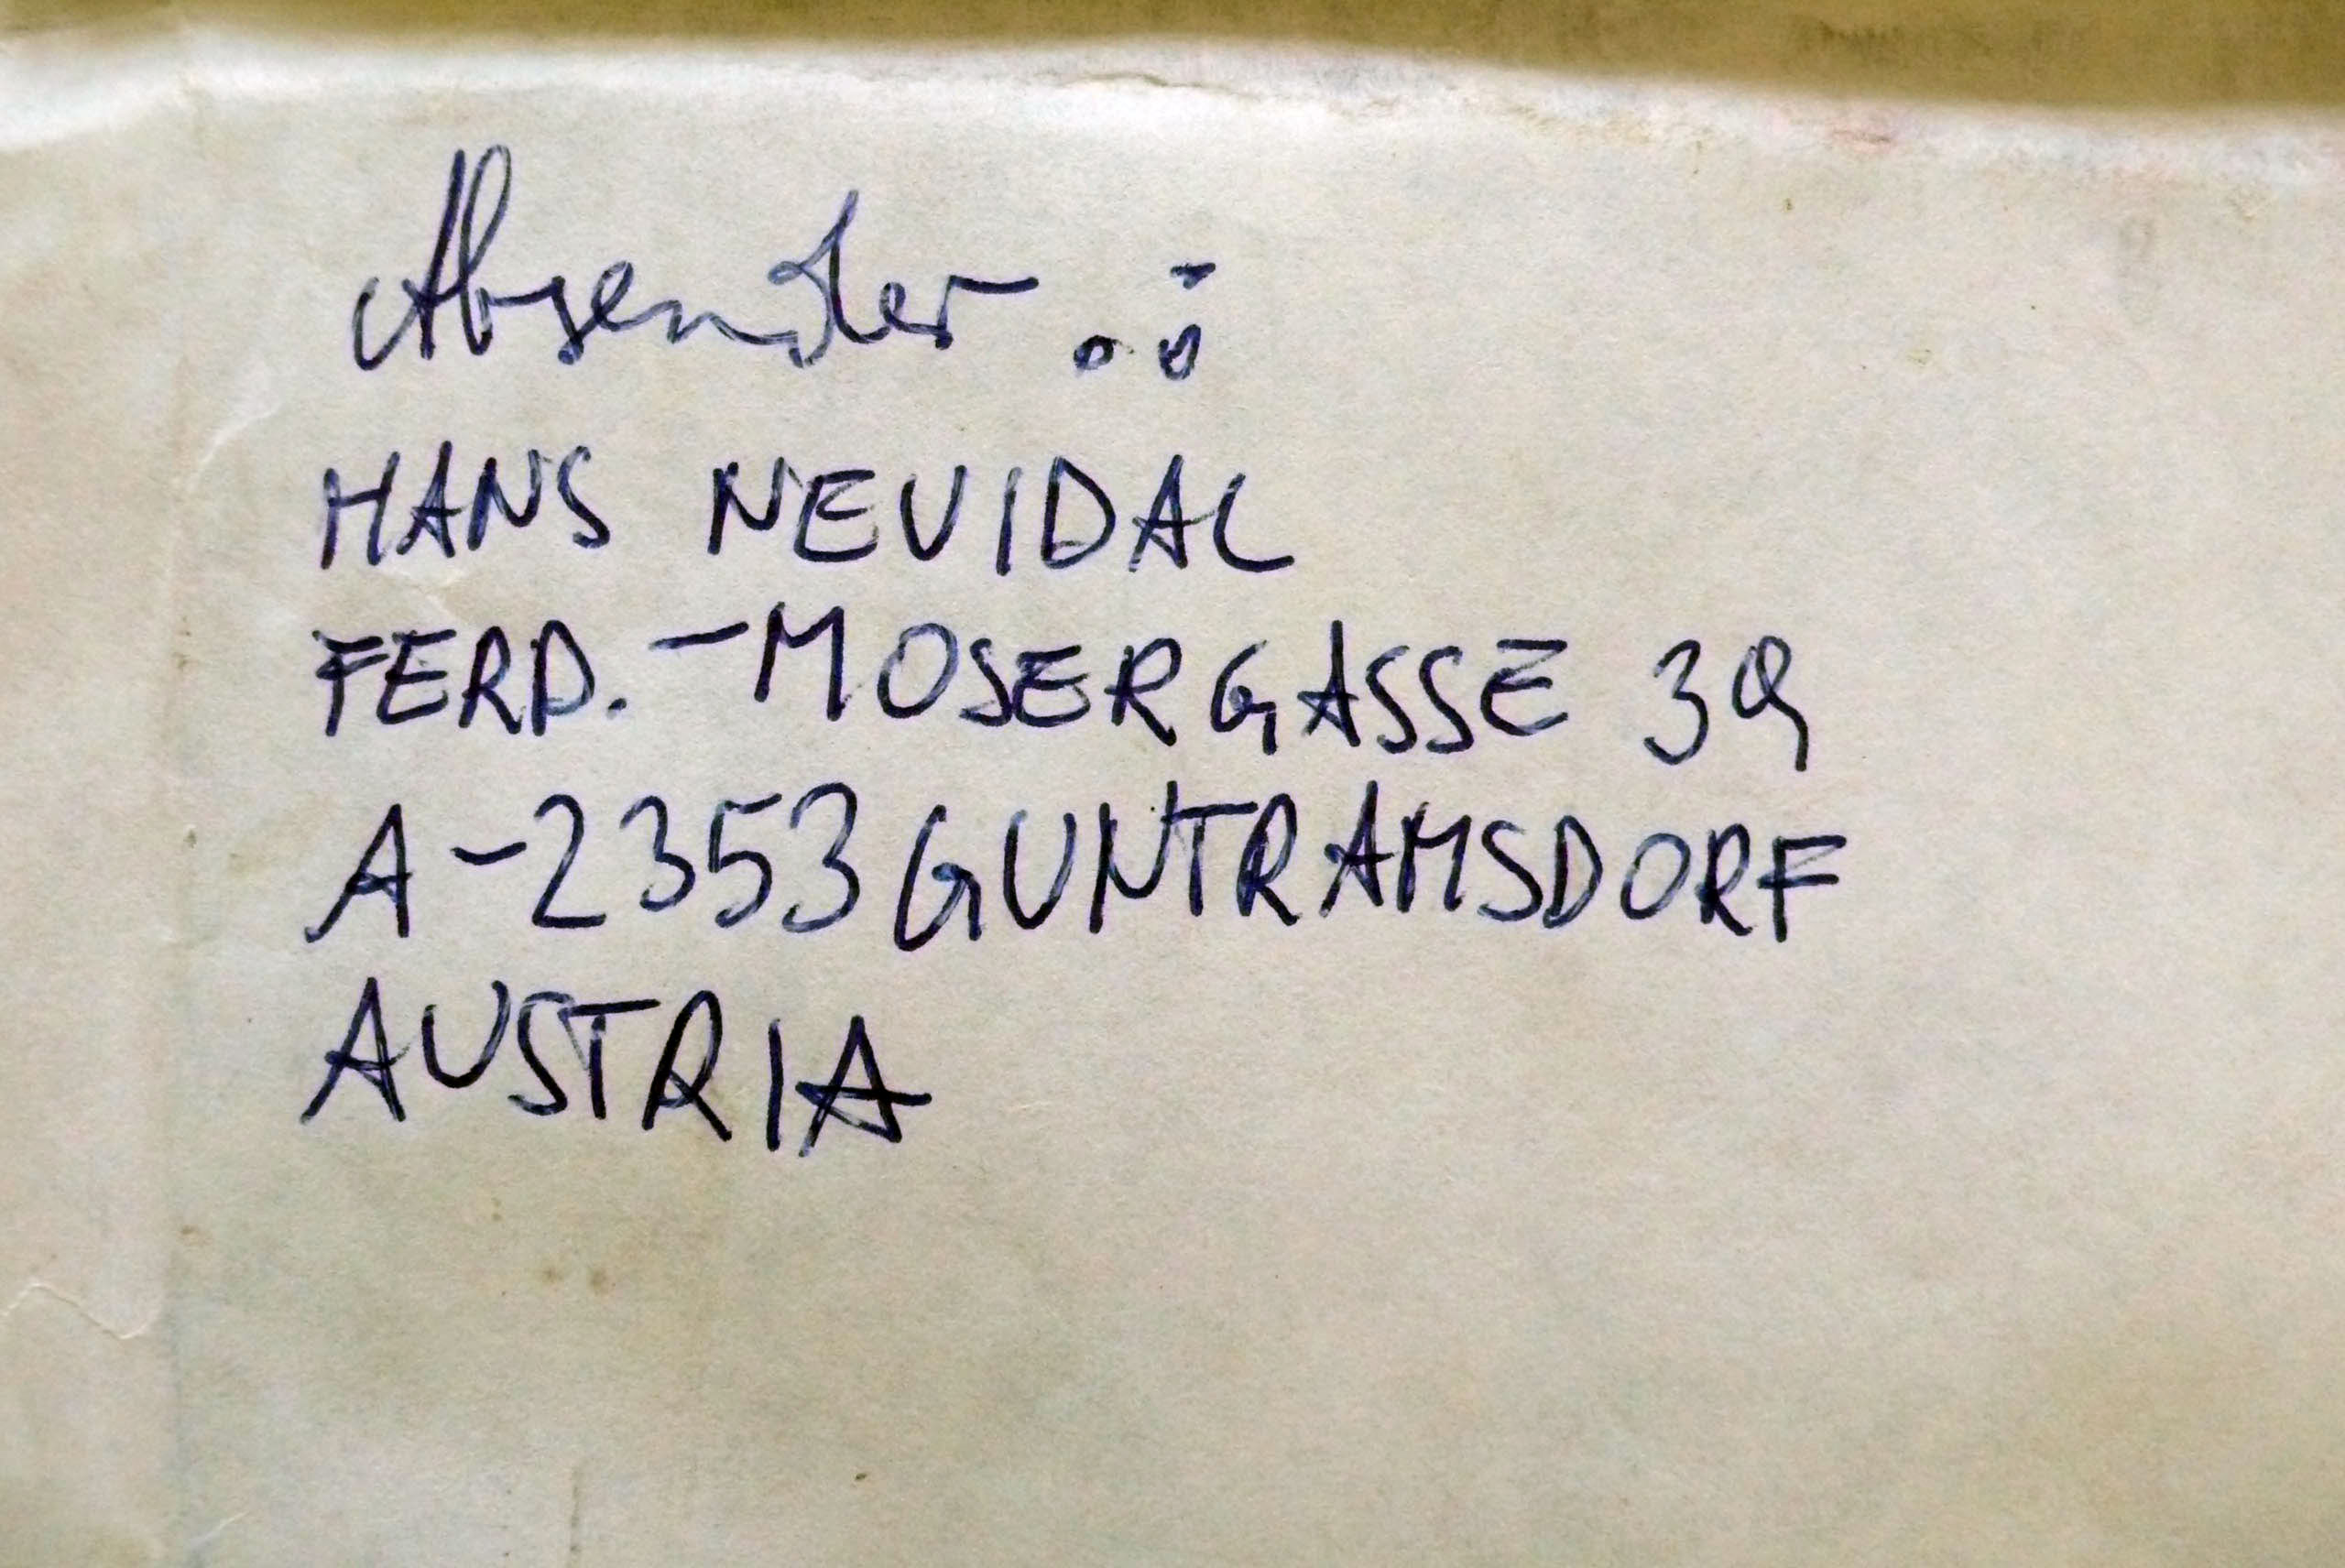 Absender.:
HANS NEVIDAL
FERD.-MOSERGASSE 39
A-2353 GUNTRAMSDORF
AUSTRIA